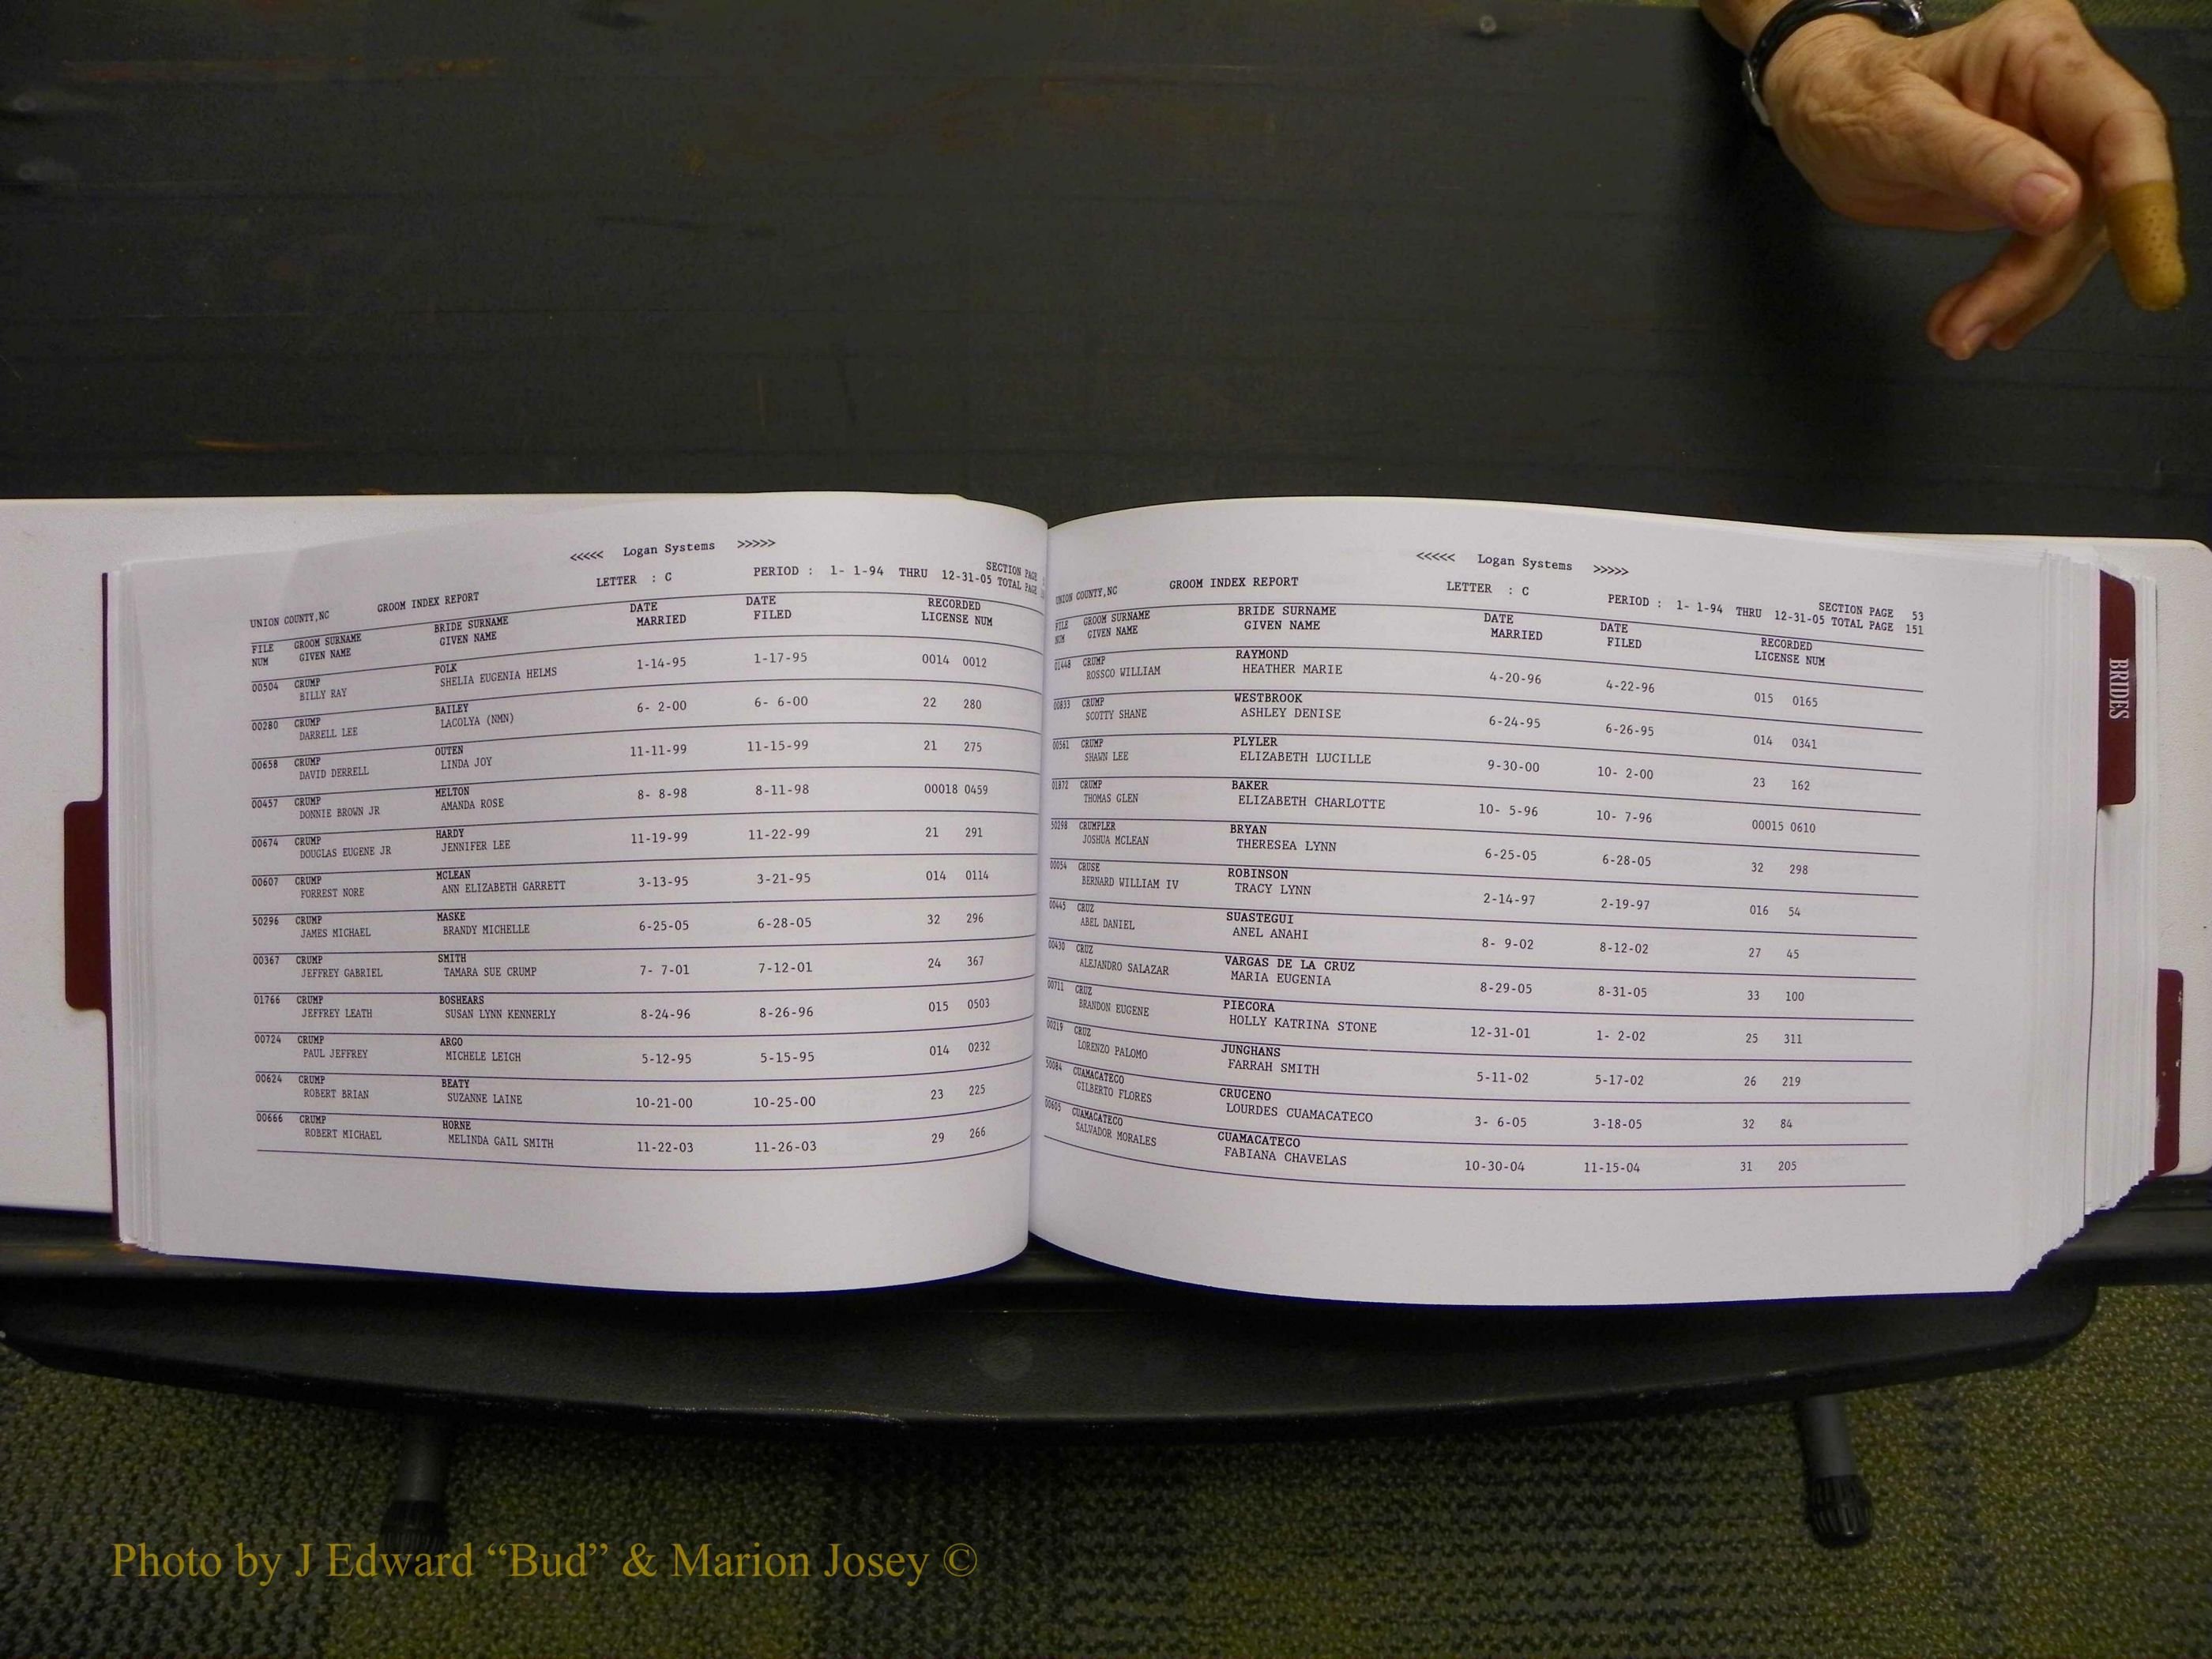 <<<<< Logan Systems >>>>>
UNION COUNTY,NC GROOM INDEX REPORT LETTER : C PERIOD : 1- 1-94 THRU 12-31-05 SECTION PAGE
TOTAL PAGE
FILE GROOM SURNAME BRIDE SURNAME DATE DATE RECORDED
NUM GIVEN NAME GIVEN NAME MARRIED FILED LICENSE NUM
00504 CRUMP POLK 1-14-95 1-17-95 0014 0012
BILLY RAY SHELIA EUGENIA HELMS
00280 CRUMP BAILEY 6- 2-00 6- 6-00 22 280
DARRELL LEE LACOLYA (NMN)
00658 CRUMP OUTEN 11-11-99 11-15-99 21 275
DAVID DERRELL LINDA JOY
00457 CRUMP MELTON 8- 8-98 8-11-98 00018 0459
DONNIE BROWN JR AMANDA ROSE
00674 CRUMP HARDY 11-19-99 11-22-99 21 291
DOUGLAS EUGENE JR JENNIFER LEE
00607 CRUMP MCLEAN 3-13-95 3-21-95 014 0114
FORREST NORE ANN ELIZABETH GARRETT
50296 CRUMP MASKE 6-25-05 6-28-05 32 296
JAMES MICHAEL BRANDY MICHELLE
00367 CRUMP SMITH 7- 7-01 7-12-01 24 367
JEFFREY GABRIEL TAMARA SUE CRUMP
01766 CRUMP BOSHEARS 8-24-96 8-26-96 015 0503
JEFFREY LEATH SUSAN LYNN KENNERLY
00724 CRUMP ARGO 5-12-95 5-15-95 014 0232
PAUL JEFFREY MICHELE LEIGH
00624 CRUMP BEATY 10-21-00 10-25-00 23 225
ROBERT BRIAN SUZANNE LAINE
00666 CRUMP HORNE 11-22-03 11-26-03 29 266
ROBERT MICHAEL MELINDA GAIL SMITH
<<<<< Logan Systems >>>>>
UNION COUNTY,NC GROOM INDEX REPORT LETTER : C PERIOD : 1- 1-94 THRU 12-31-05 SECTION PAGE 53
TOTAL PAGE 151
FILE GROOM SURNAME BRIDE SURNAME DATE DATE RECORDED
NUM GIVEN NAME GIVEN NAME MARRIED FILED LICENSE NUM
01448 CRUMP RAYMOND 4-20-96 4-22-96 015 0165
ROSSCO WILLIAM HEATHER MARIE
00833 CRUMP WESTBROOK 6-24-95 6-26-95 014 0341
SCOTTY SHANE ASHLEY DENISE
00561 CRUMP PLYLER 9-30-00 10- 2-00 23 162
SHAWN LEE ELIZABETH LUCILLE
01872 CRUMP BAKER 10- 5-96 10- 7-96 00015 0610
THOMAS GLEN ELIZABETH CHARLOTTE
50298 CRUMPLER BRYAN 6-25-05 6-28-05 32 298
JOSHUA MCLEAN THERESEA LYNN
00054 CRUSE ROBINSON 2-14-97 2-19-97 016 54
BERNARD WILLIAM IV TRACY LYNN
00445 CRUZ SUASTEGUI 8- 9-02 8-12-02 27 45
ABEL DANIEL ANEL ANAHI
00430 CRUZ VARGAS DE LA CRUZ 8-29-05 8-31-05 33 100
ALEJANDRO SALAZAR MARIA EUGENIA
00711 CRUZ PIECORA 12-31-01 1- 2-02 25 311
BRANDON EUGENE HOLLY KATRINA STONE
00219 CRUZ JUNGHANS 5-11-02 5-17-02 26 219
LORENZO PALOMO FARRAH SMITH
50084 CUAMACATECO CRUCENO 3- 6-05 3-18-05 32 84
GILBERTO FLORES LOURDES CUAMACATECO
00605 CUAMACATECO CUAMACATECO 10-30-04 11-15-04 31 205
SALVADOR MORALES FABIANA CHAVELAS
BRIDES
Photo by J Edward “Bud” & Marion Josey ©